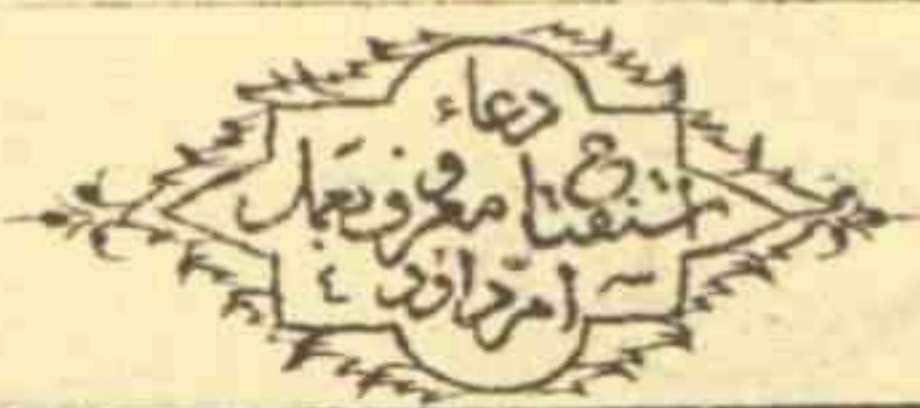 دعاء
استفتاح معروف بعمل
امّ داود